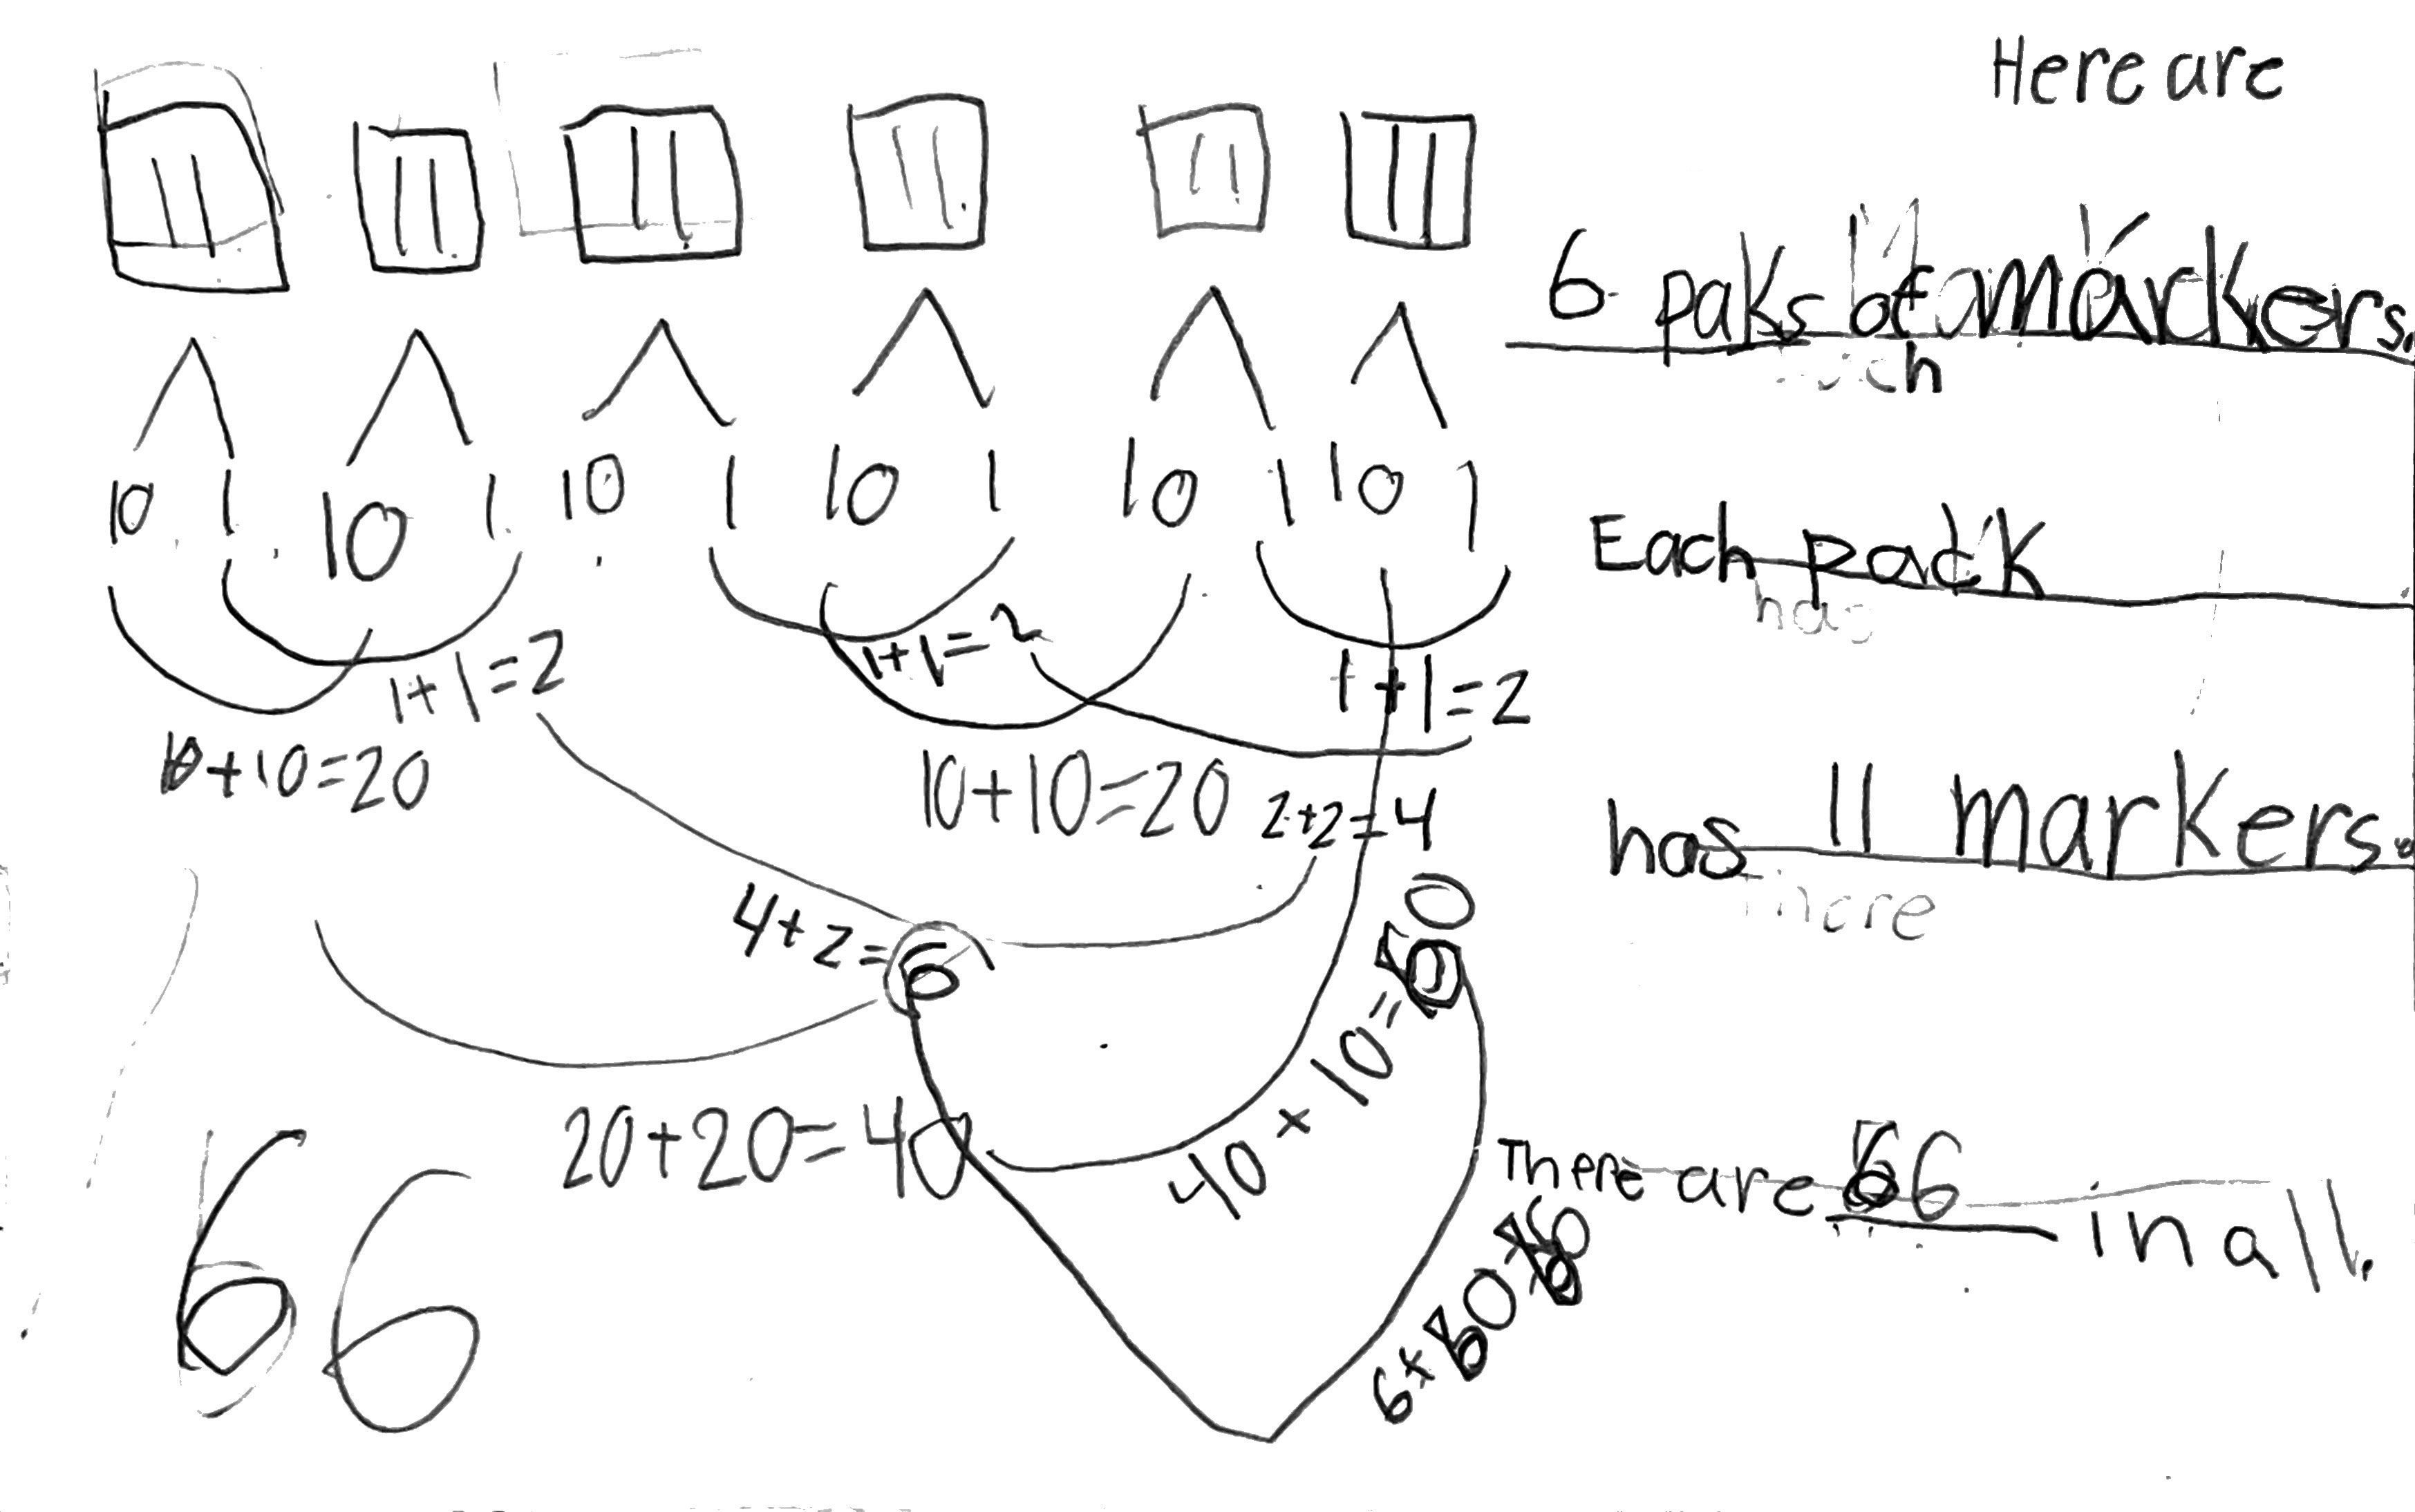 Here are
11 11 11 11 11 11
6 paks of markers.
10 1 10 1 10 1 10 1 10 1 10 1
Each pack
has 11 markers.
1+1=2 1+1=2 1+1=2
10+10=20 10+10=20 2+2=4
4+2=6
20+20=40
40+10=
There are 66 in all.
66